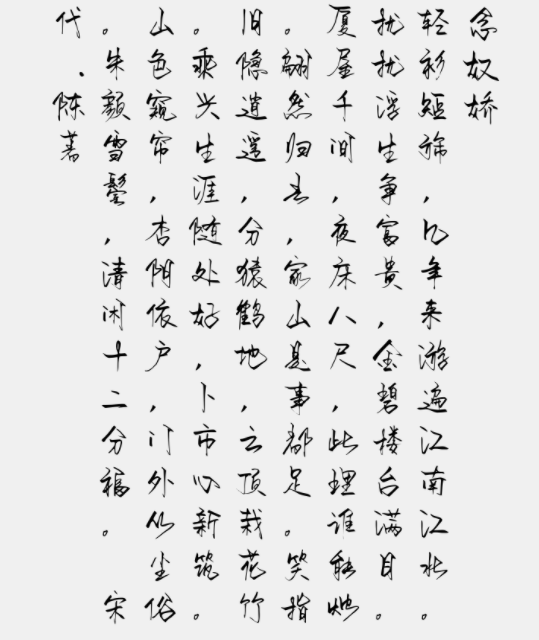 念奴娇
轻衫短，几年来游遍江南江北。
扰扰浮生争富贵，金碧楼台满目。
厦屋千间，夜床八尺，此理谁能烛
。翩然归去，家山是事都足。笑指
旧隐逍遥，分猿鹤地，云顶栽花竹
。乘兴生涯随处好，卜市心新筑。
山色窥帘，杏阴依户，门外尘俗
。朱颜雪鬓，清闲十二分福。 宋
代．陈著